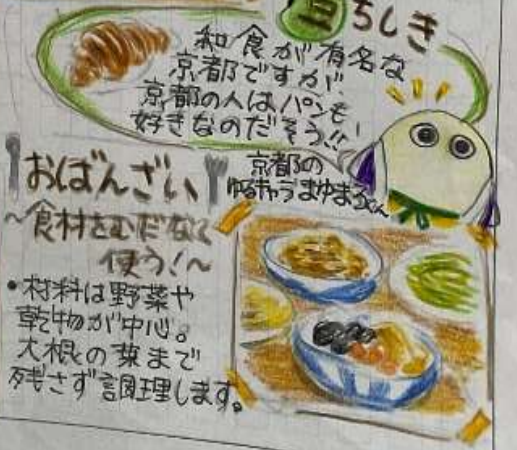 豆ちしき
和食が有名な
京都ですが、
京都の人はパンも
好きなのだそう!!
京都の
ゆるキャラまゆまろくん
おばんざい
～食材をむだなく
使う！～
・材料は野菜や
乾物が中心。
大根の葉まで
残さず調理します。